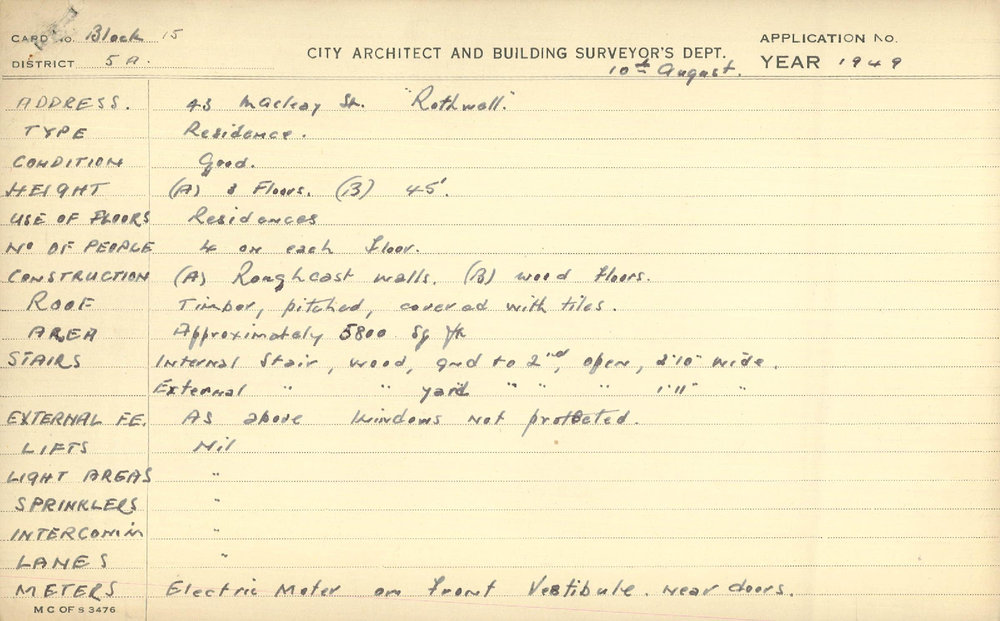 CARD No. Block 15
DISTRICT 5A.
CITY ARCHITECT AND BUILDING SURVEYOR'S DEPT.
10th August.
APPLICATION No.
YEAR 1949
ADDRESS. 43 Macleay St. "Rothwall."
TYPE Residence.
CONDITION Good.
HEIGHT (A) 3 Floors. (B) 45'
USE OF FLOORS Residences
No OF PEOPLE 4 on each floor.
CONSTRUCTION (A) Roughcast walls. (B) wood floors.
ROOF Timber, pitched, covered with tiles.
AREA Approximately 5800 Sq ft
STAIRS Internal Stair, wood, gnd to 2nd, open, 2'10" wide.
External " " yard " " " 1'11" "
EXTERNAL F.E. AS above Windows not protected.
LIFTS Nil
LIGHT AREAS "
SPRINKLERS "
INTERCOM'N "
LANES "
METERS Electric Meter on front Vestibule near doors.
M C OF S 3476